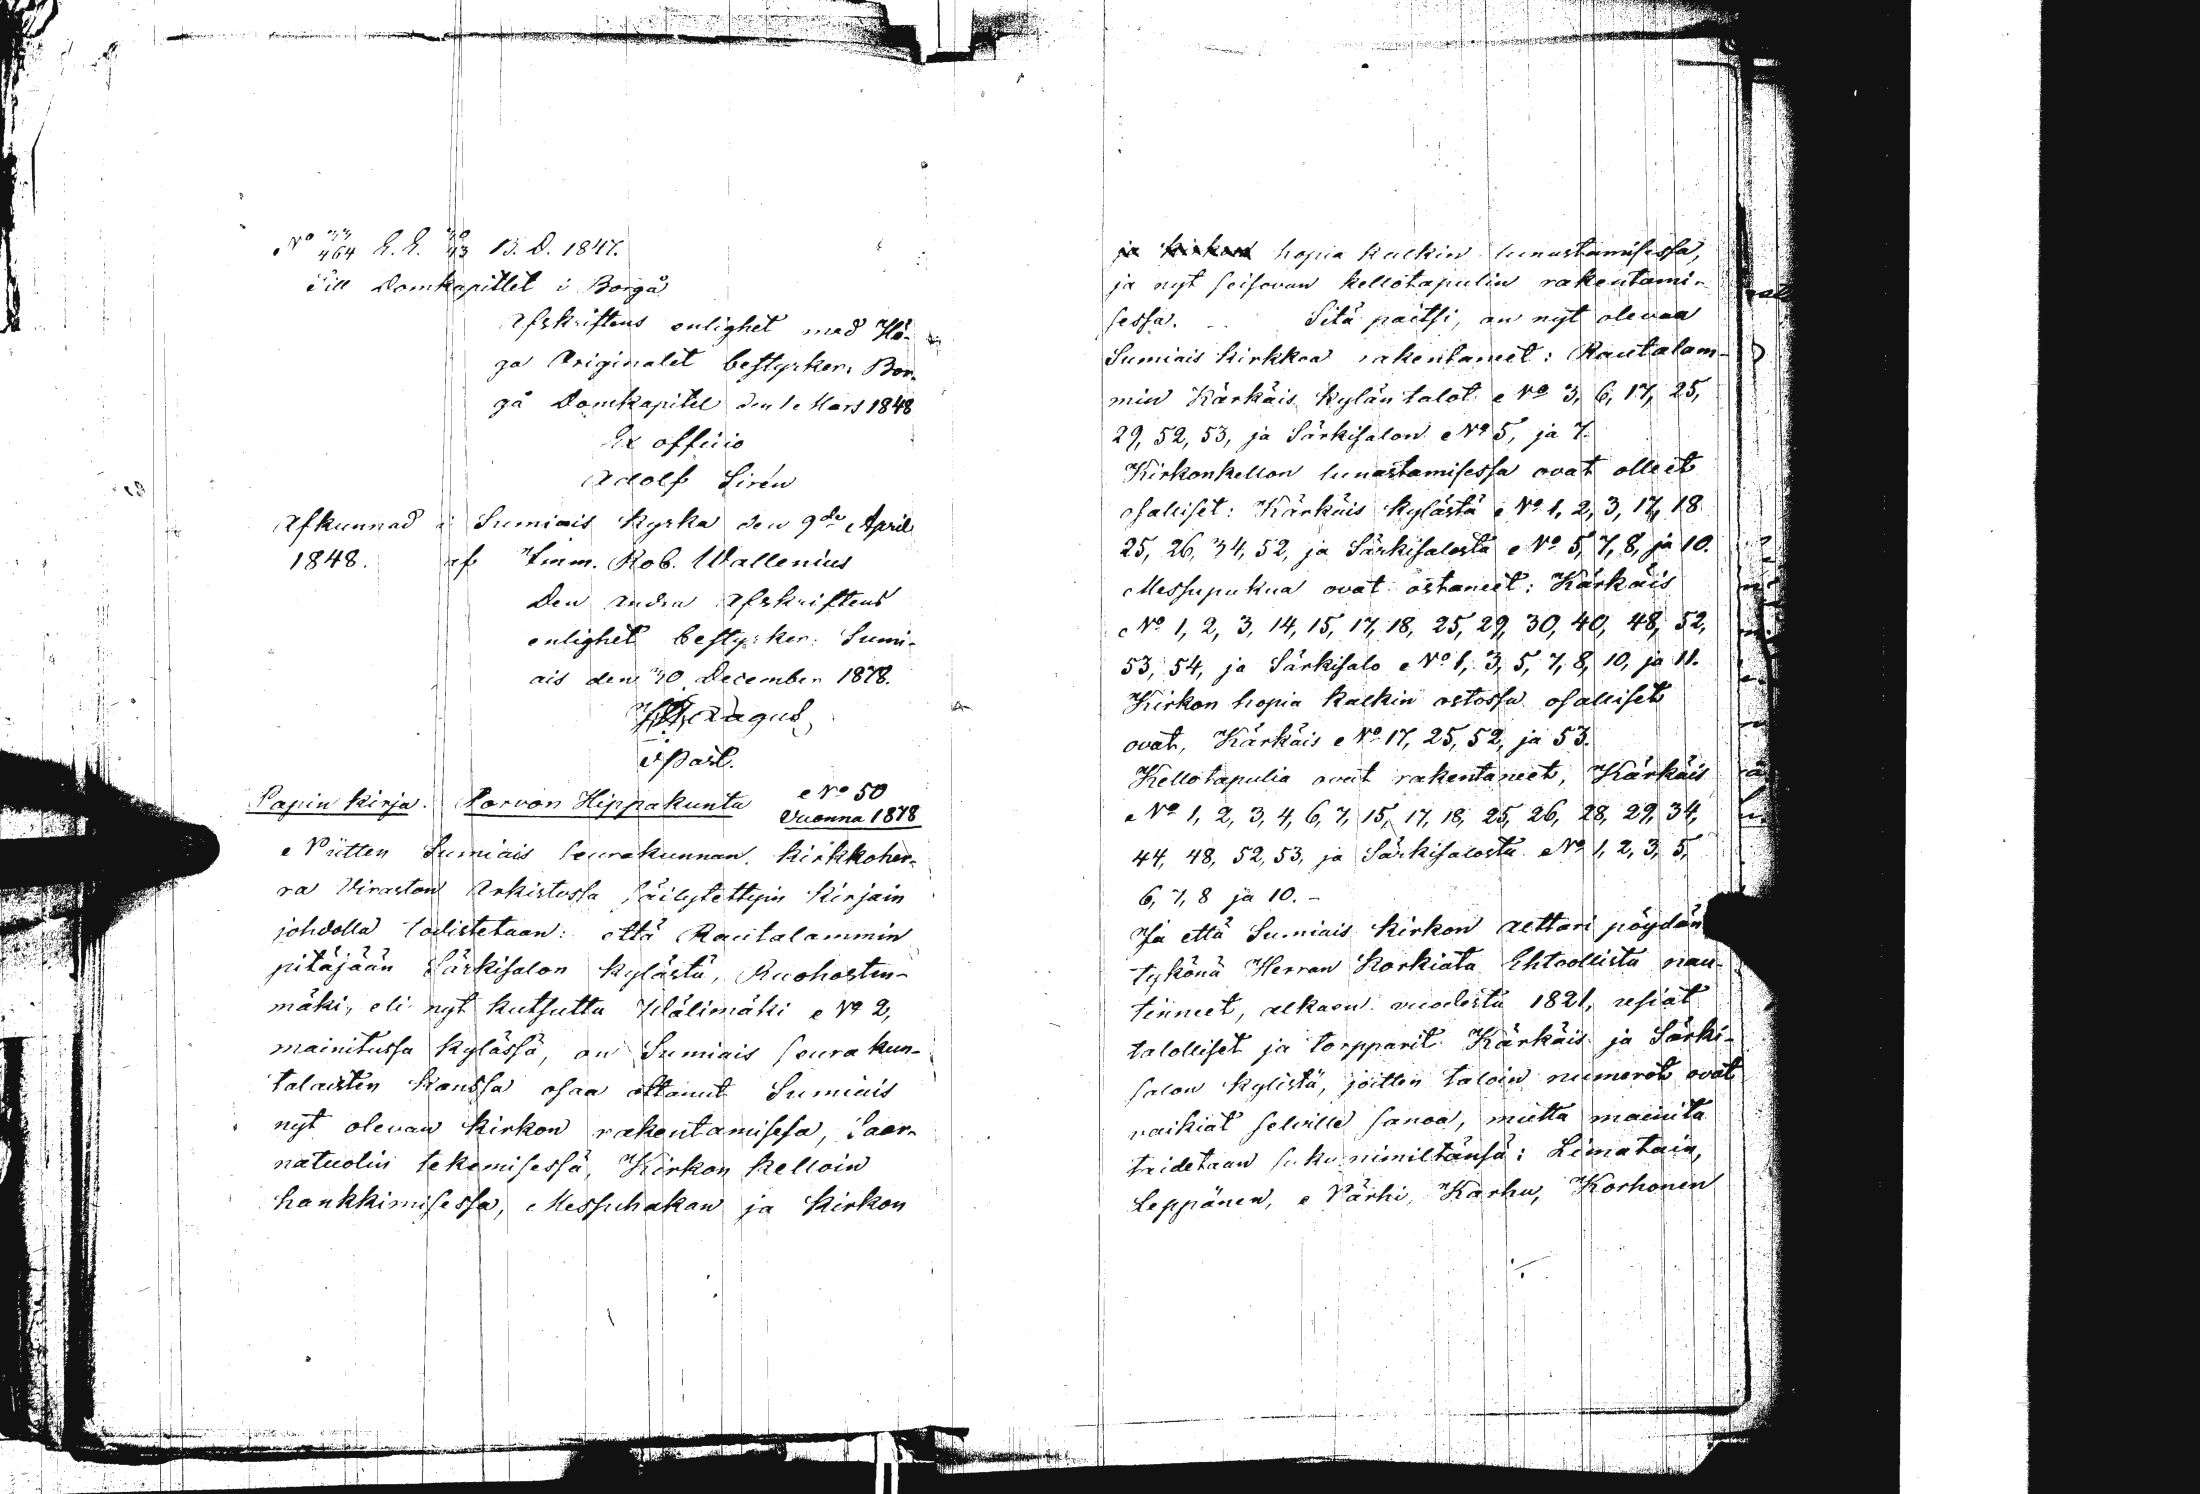 No 33/464 E.E. 30/43 B.D. 1847.
Till Domkapitlet i Borgå
Afskriftens enlighet med Hö-
ga Originalet bestyrker, Bor-
gå Domkapitel den 1 Mars 1848
Ex officio
Adolf Sirén
Afkunnad i Sumiais kyrka den 9de April
1848. af Imm. Rob. Wallenius
Den andra Afskriftens
enlighet bestyrker. Sumi-
ais den 30 December 1878.
v Past.
Papin kirja. Porvon Hippakunta No 50
Vuonna 1878
Niitten Sumiais seurakunnan kirkkoher-
ra Viraston Arkistossa säilytettyin kirjain
johdolla todistetaan: että Rautalammin
pitäjään Särkisalon kylästä, Ruohosten-
mäki, eli nyt kutsuttu Välimäki No 2,
mainitussa kylässä, on Sumiais seurakun-
talaisten kanssa osaa ottanut Sumiais
nyt olevan kirkon rakentamisessa, Saar-
natuolin tekemisessä, Kirkon kelloin
hankkimisessa, Messuhakan ja kirkon
ja kirkon hopia kalkin lunastamisessa,
ja nyt seisovan kellotapulin rakentami-
sessa. Sitä paitsi, on nyt olevaa
Sumiais kirkkoa rakentaneet: Rautalam-
min Kärkäis kylän talot No 3, 6, 17, 25,
29, 52, 53, ja Särkisalon No 5, ja 7.
Kirkonkellon lunastamisessa ovat olleet
osalliset: Kärkäis kylästä No 1, 2, 3, 17, 18
25, 26, 34, 52, ja Särkisalosta No 5, 7, 8, ja 10.
Messupukua ovat ostaneet: Kärkäis
No 1, 2, 3, 14, 15, 17, 18, 25, 29, 30, 40, 48, 52,
53, 54, ja Särkisalo No 1, 3, 5, 7, 8, 10, ja 11.
Kirkon hopia kalkin ostossa osalliset
ovat, Kärkäis No 17, 25, 52, ja 53.
Kellotapulia ovat rakentaneet, Kärkäis
No 1, 2, 3, 4, 6, 7, 15, 17, 18, 25, 26, 28, 29, 34,
44, 48, 52, 53, ja Särkisalosta No 1, 2, 3, 5,
6, 7, 8 ja 10. -
Ja että Sumiais kirkon alttari pöydän
tykönä Herran Korkiata Ehtoollista nau-
tinneet, alkaen vuodesta 1821, usiat
talolliset ja torpparit Kärkäis ja Särki-
salon kylistä, joitten taloin numerot ovat
vaikiat selville sanoa, mutta mainita
taidetaan sukunimiltänsä: Limatain,
Leppänen, Närhi, Karhu, Korhonen